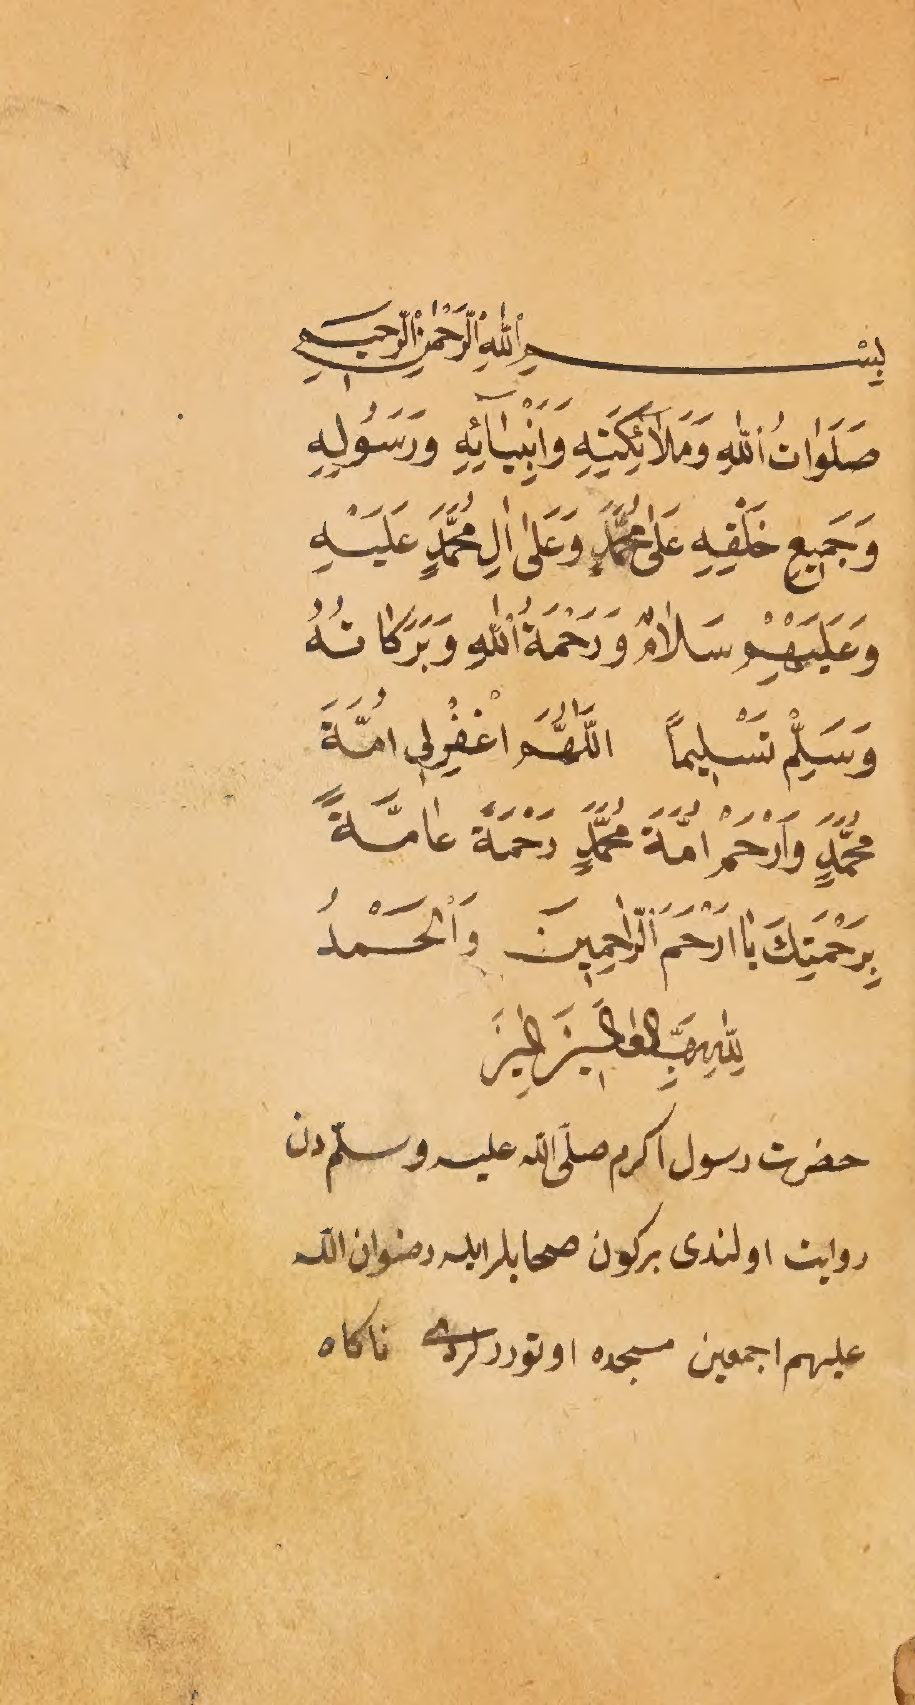 بِسْمِ اللّٰهِ الرَّحْمٰنِ الرَّحِيمِ
صَلَوَاتُ اللّٰهِ وَمَلَآئِكَتِهِ وَاَنْبِيَآئِهِ وَرَسُولِهِ
وَجَمِيعِ خَلْقِهِ عَلٰى مُحَمَّدٍ وَعَلٰى اٰلِ مُحَمَّدٍ عَلَيْهِ
وَعَلَيْهِمْ سَلَامٌ وَرَحْمَةُ اللّٰهِ وَبَرَكَاتُهُ
وَسَلِّمْ تَسْلِيماً اَللّٰهُمَّ اغْفِرْلِي اُمَّةَ
مُحَمَّدٍ وَارْحَمْ اُمَّةَ مُحَمَّدٍ رَحْمَةً عَامَّةً
بِرَحْمَتِكَ يَا اَرْحَمَ الرَّاحِمِينَ وَالْحَمْدُ
لِلّٰهِ رَبِّ الْعَالَمِينَ
حضرت رسول اكرم صلّى اللّه عليه وسلّم دن
روايت اولندى بركون صحابلر ايله رضوان اللّه
عليهم اجمعين مسجده اوتوررلردى ناكاه